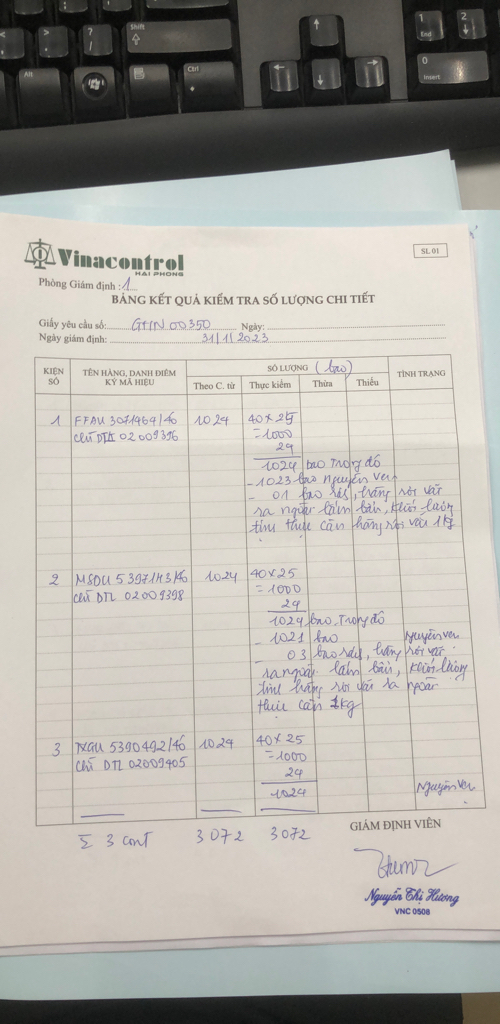 Shift
Alt
Ctrl
1
End
2
0
Insert
Vinacontrol
HAI PHONG
SL 01
Phòng Giám định : 1
BẢNG KẾT QUẢ KIỂM TRA SỐ LƯỢNG CHI TIẾT
Giấy yêu cầu số: GHN 00350 Ngày:
Ngày giám định: 31/1/2023
KIỆN SỐ
TÊN HÀNG, DANH ĐIỂM KÝ MÃ HIỆU
SỐ LƯỢNG (bao)
TÌNH TRẠNG
Theo C. từ Thực kiểm Thừa Thiếu
1 FFAU 3071464/40 1024 40 x 25
chì DTL 02009396 =1000
24
1024 bao trong đó
- 1023 bao nguyên vẹn
- 01 bao rách, hàng rơi vãi
ra ngoài lấm bẩn, khối lượng
tịnh thực cân hàng rơi vãi 1kg
2 MSDU 5397143/40 1024 40 x 25
chì DTL 02009398 =1000
24
1024 bao, trong đó
- 1021 bao nguyên vẹn
- 03 bao rách, hàng rơi vãi
ra ngoài lấm bẩn, khối lượng
tịnh hàng rơi vãi ra ngoài
thực cân kg
3 5390492/40 1024 40 x 25
chì DTL 02009405 =1000
24
1024 nguyên vẹn
Σ 3 cont 3072 3072
GIÁM ĐỊNH VIÊN
Nguyễn Thị Hương
VNC 0508